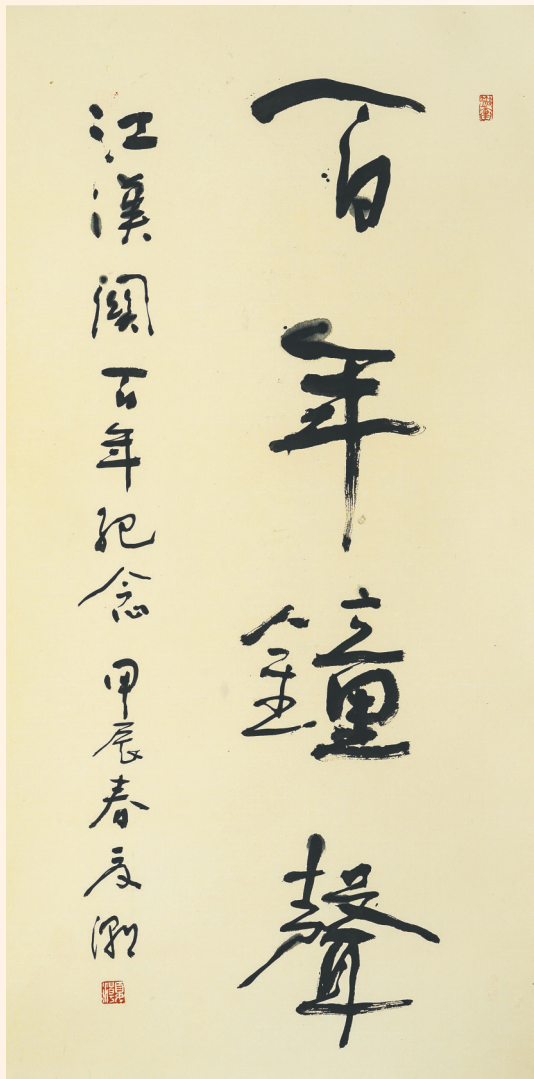 百年鐘聲
江漢關百年紀念 甲辰春夏潮